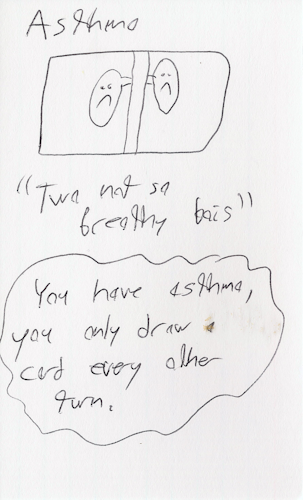 Asthma
"Two not so
breathy bois"
You have asthma,
you only draw a
card every other
turn.